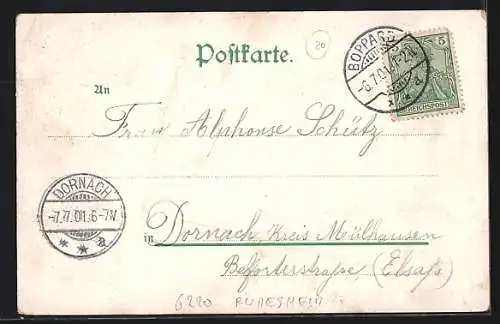 Postkarte.
20
BOPPARD
-6.7.01.1-2N.
a
5
REICHSPOST
An
Frau Alphonse Schütz
DORNACH
-7.7.01.6-7V.
* * a
in Dornach, Kreis Mülhausen
Belforterstraße, (Elsaß)
6220 RÜDESHEIM